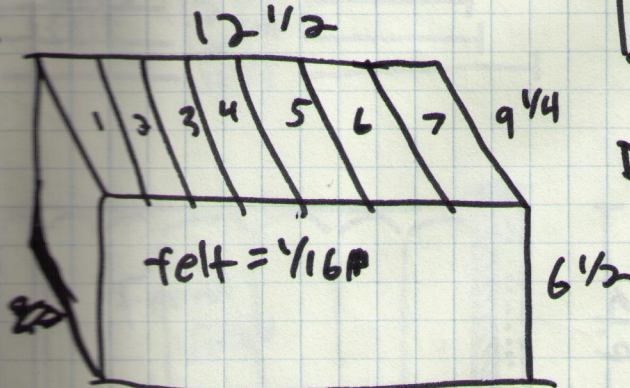 12 1/2
1 2 3 4 5 6 7 9 1/4
felt = 1/16
6 1/2